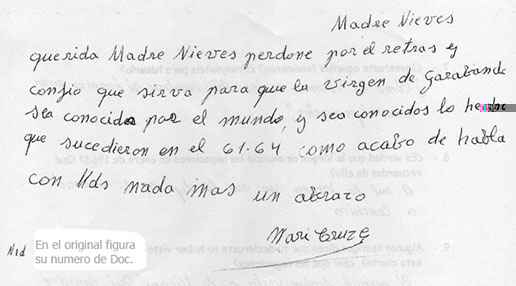 Madre Nieves
querida Madre Nieves perdone por el retras y
confio que sirva para que la virgen de Garabanda
sea conocida por el mundo, y sea conocidos lo hecho
que sucedieron en el 61-64 como acabo de habla
con Uds nada mas un abrazo
Mari Cruz G
Nid
En el original figura
su numero de Doc.